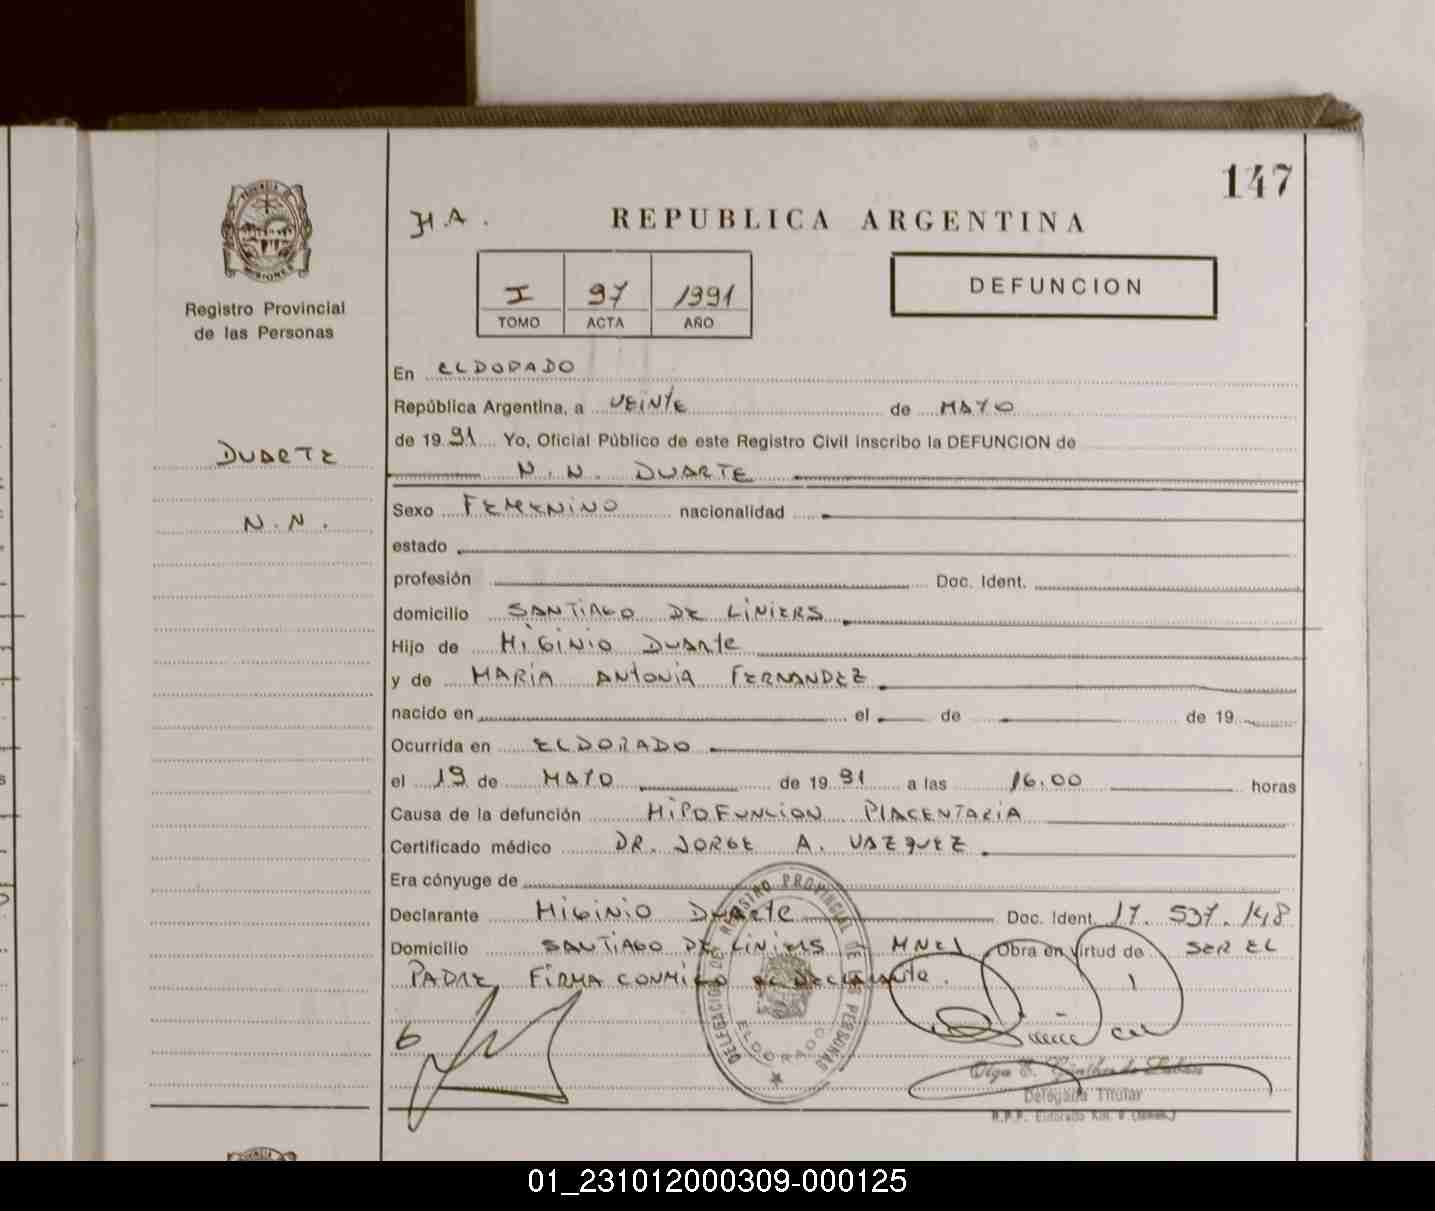 147
H.A.
REPUBLICA ARGENTINA
PROVINCIA DE
MISIONES
Registro Provincial
de las Personas
I 97 1991
TOMO ACTA AÑO
DEFUNCION
En ELDORADO
República Argentina, a VEINTE de MAYO
de 19 91 Yo, Oficial Público de este Registro Civil inscribo la DEFUNCION de
DUARTE
N.N. DUARTE
N.N.
Sexo FEMENINO nacionalidad
estado
profesión Doc. Ident.
domicilio SANTIAGO DE LINIERS
Hijo de HIGINIO DUARTE
y de MARIA ANTONIA FERNANDEZ
nacido en el de de 19
Ocurrida en ELDORADO
el 19 de MAYO de 19 91 a las 16.00 horas
Causa de la defunción HIPOFUNCION PLACENTARIA
Certificado médico DR. JORGE A. VAZQUEZ
Era cónyuge de
Declarante HIGINIO DUARTE Doc. Ident. 17.537.148
Domicilio SANTIAGO DE LINIERS MNES Obra en virtud de SER EL
PADRE FIRMA CONMIGO EL DECLARANTE.
DELEGACION DEL REGISTRO PROVINCIAL DE LAS PERSONAS
ELDORADO
Olga E.
Delegada Titular
R.P.P. Eldorado
01_231012000309-000125